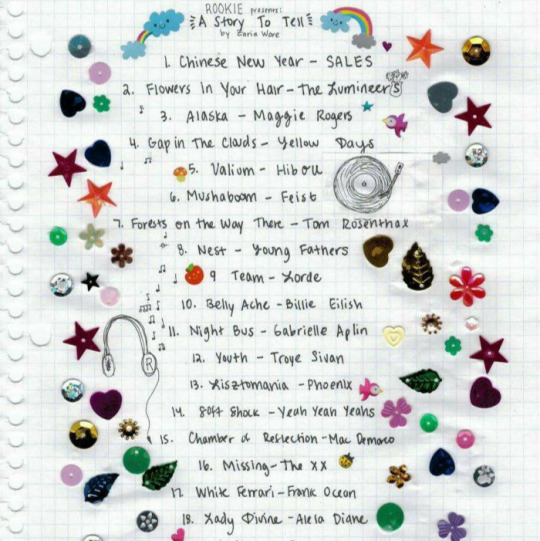 ROOKIE presents:
A Story To Tell
by Caria Ware
1. Chinese New Year - SALES
2. Flowers In Your Hair - The Lumineers
3. Alaska - Maggie Rogers
4. Gap in The Clouds - Yellow Days
5. Valium - Hibou
6. Mushaboom - Feist
7. Forests on the Way There - Tom Rosenthal
8. Nest - Young Fathers
9 Team - Lorde
10. Belly Ache - Billie Eilish
11. Night Bus - Gabrielle Aplin
12. Youth - Troye Sivan
13. Lisztomania - Phoenix
14. Soft Shock - Yeah Yeah Yeahs
15. Chamber of Reflection - Mac Demarco
16. Missing - The XX
17. White Ferrari - Frank Ocean
18. Lady Divine - Alela Diane
R